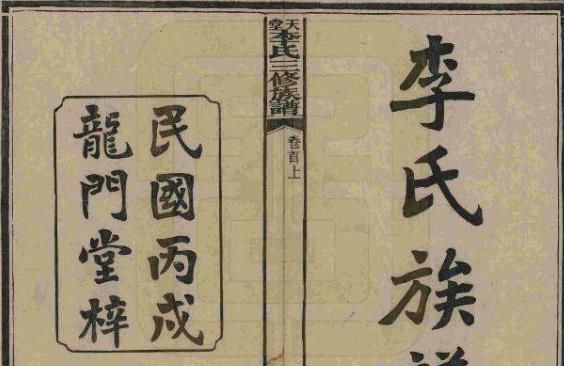 李氏族
天堂李氏三修族譜
卷首上
民國丙戌
龍門堂梓